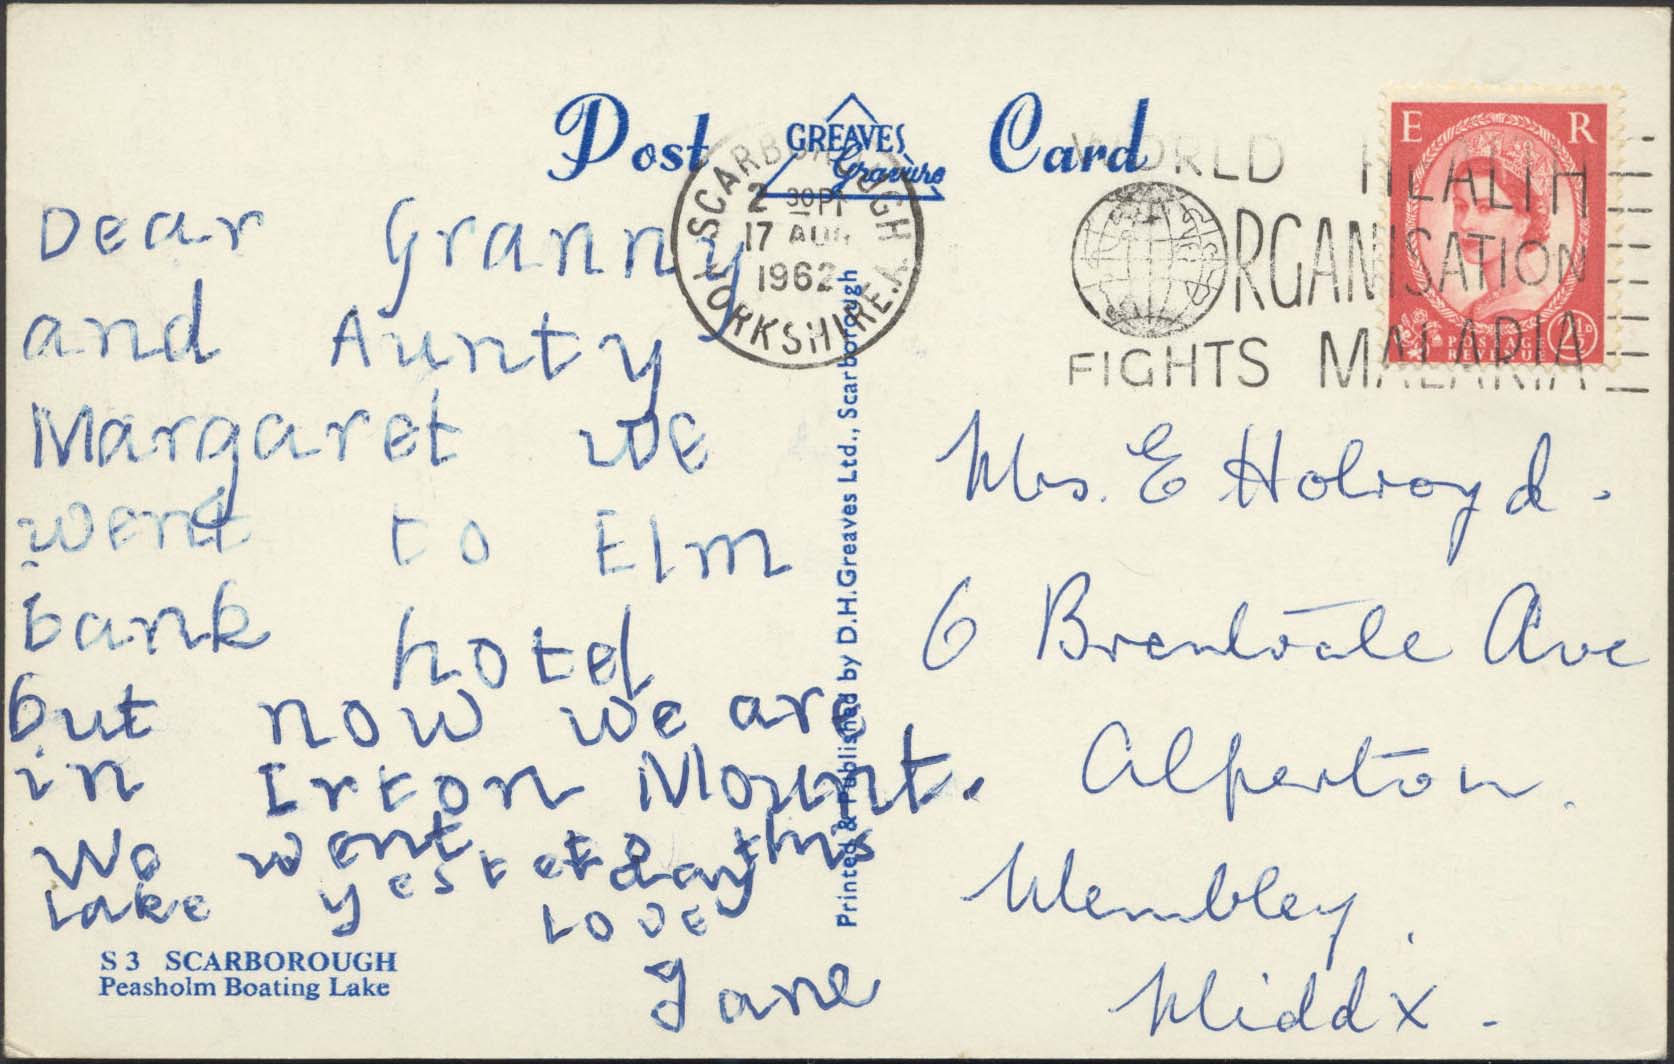 Post Card
GREAVES
Gravure
SCARBOROUGH
2 30PM
17 AUG
1962
YORKSHIRE.A
WORLD HEALTH
ORGANISATION
FIGHTS MALARIA
E R
POSTAGE
REVENUE
2½D
Dear Granny
and Aunty
Margaret we
went to Elm
bank hotel
but now we are
in Irton Mount.
We went to this
Lake yesterday
Love
Jane
S 3 SCARBOROUGH
Peasholm Boating Lake
Printed & Published by D.H.Greaves Ltd., Scarborough
Mrs. E Holroyd.
6 Brentvale Ave
Alperton.
Wembley.
Middx.